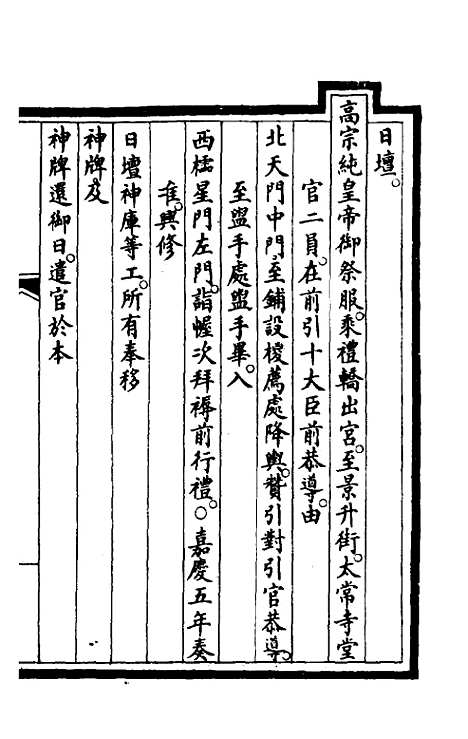 日壇。
高宗純皇帝御祭服。乘禮轎出宮。至景升街。太常寺堂
官二員。在前引十大臣前恭導。由
北天門中門。至鋪設椶薦處降輿。贊引對引官恭導。
至盥手處盥手畢。入
西櫺星門左門。詣幄次拜褥前行禮。○嘉慶五年奏
准。興修
日壇神庫等工。所有奉移
神牌及
神牌還御日。遣官於本